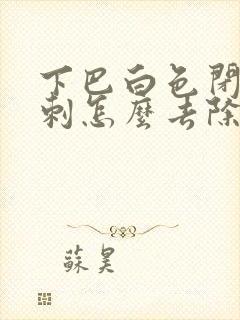 下巴白色閉
刺怎麼去除
蘇昊